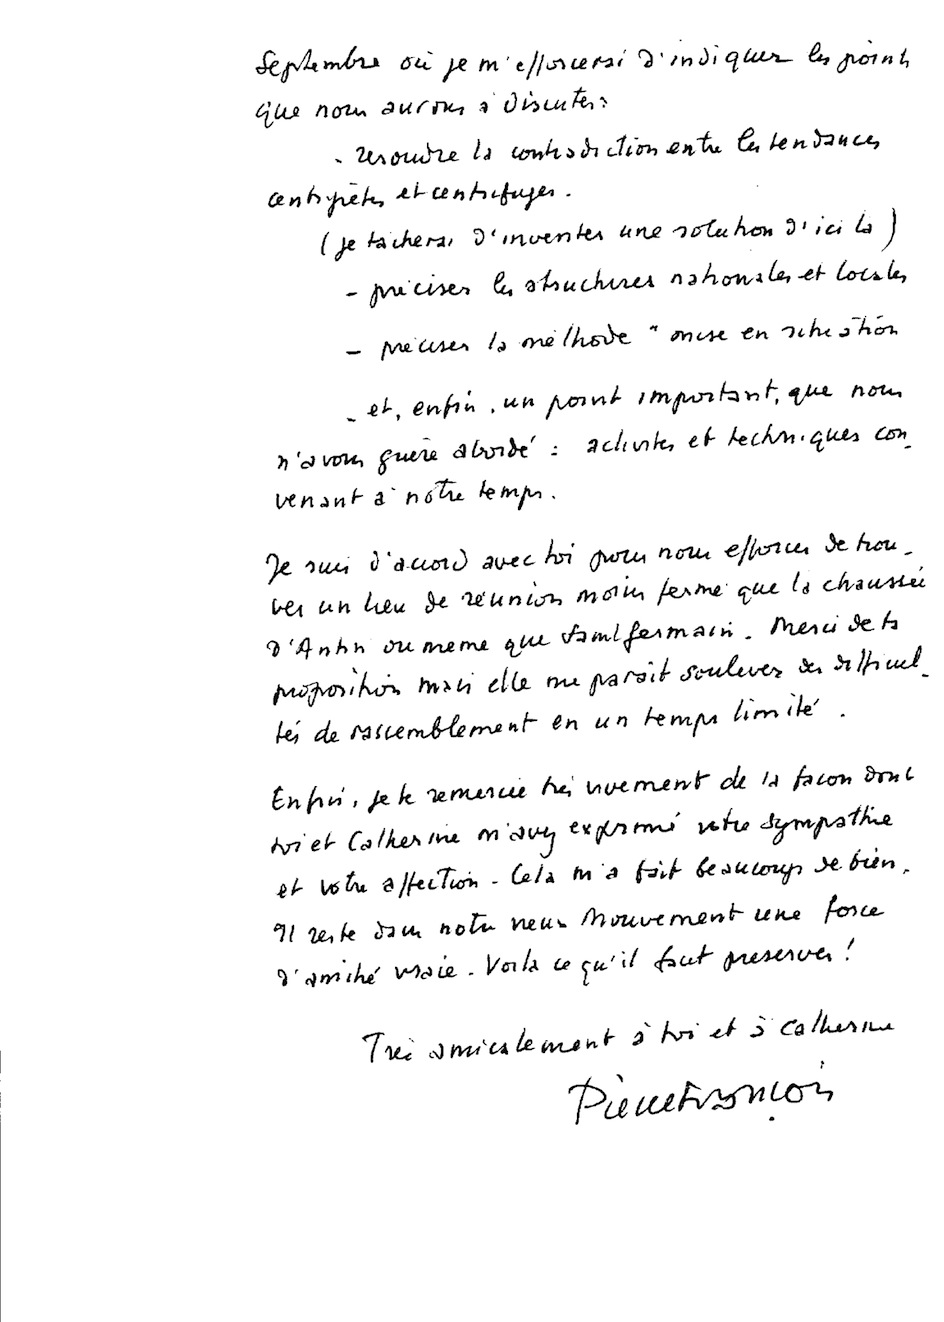 Septembre où je m'efforcerai d'indiquer les points
que nous aurons à discuter :
- resoudre la contradiction entre les tendances
centripètes et centrifuges.
(je tacherai d'inventer une solution d'ici là)
- préciser les structures nationales et locales
- préciser la méthode "mise en situation
- et, enfin, un point important, que nous
n'avons guère abordé : activités et techniques con-
venant à notre temps.
Je suis d'accord avec toi pour nous efforcer de trou-
ver un lieu de réunion moins fermé que la chaussée
d'Antin ou meme que Saint Germain. Merci de ta
proposition mais elle me parait soulever des difficul-
tés de rassemblement en un temps limité.
Enfin, je te remercie très vivement de la façon dont
toi et Catherine m'avez exprimé votre sympathie
et votre affection. Cela m'a fait beaucoup de bien.
Il reste dans notre vieux Mouvement une force
d'amitié vraie. Voila ce qu'il faut preserver !
Très amicalement à toi et à Catherine
Pierre François